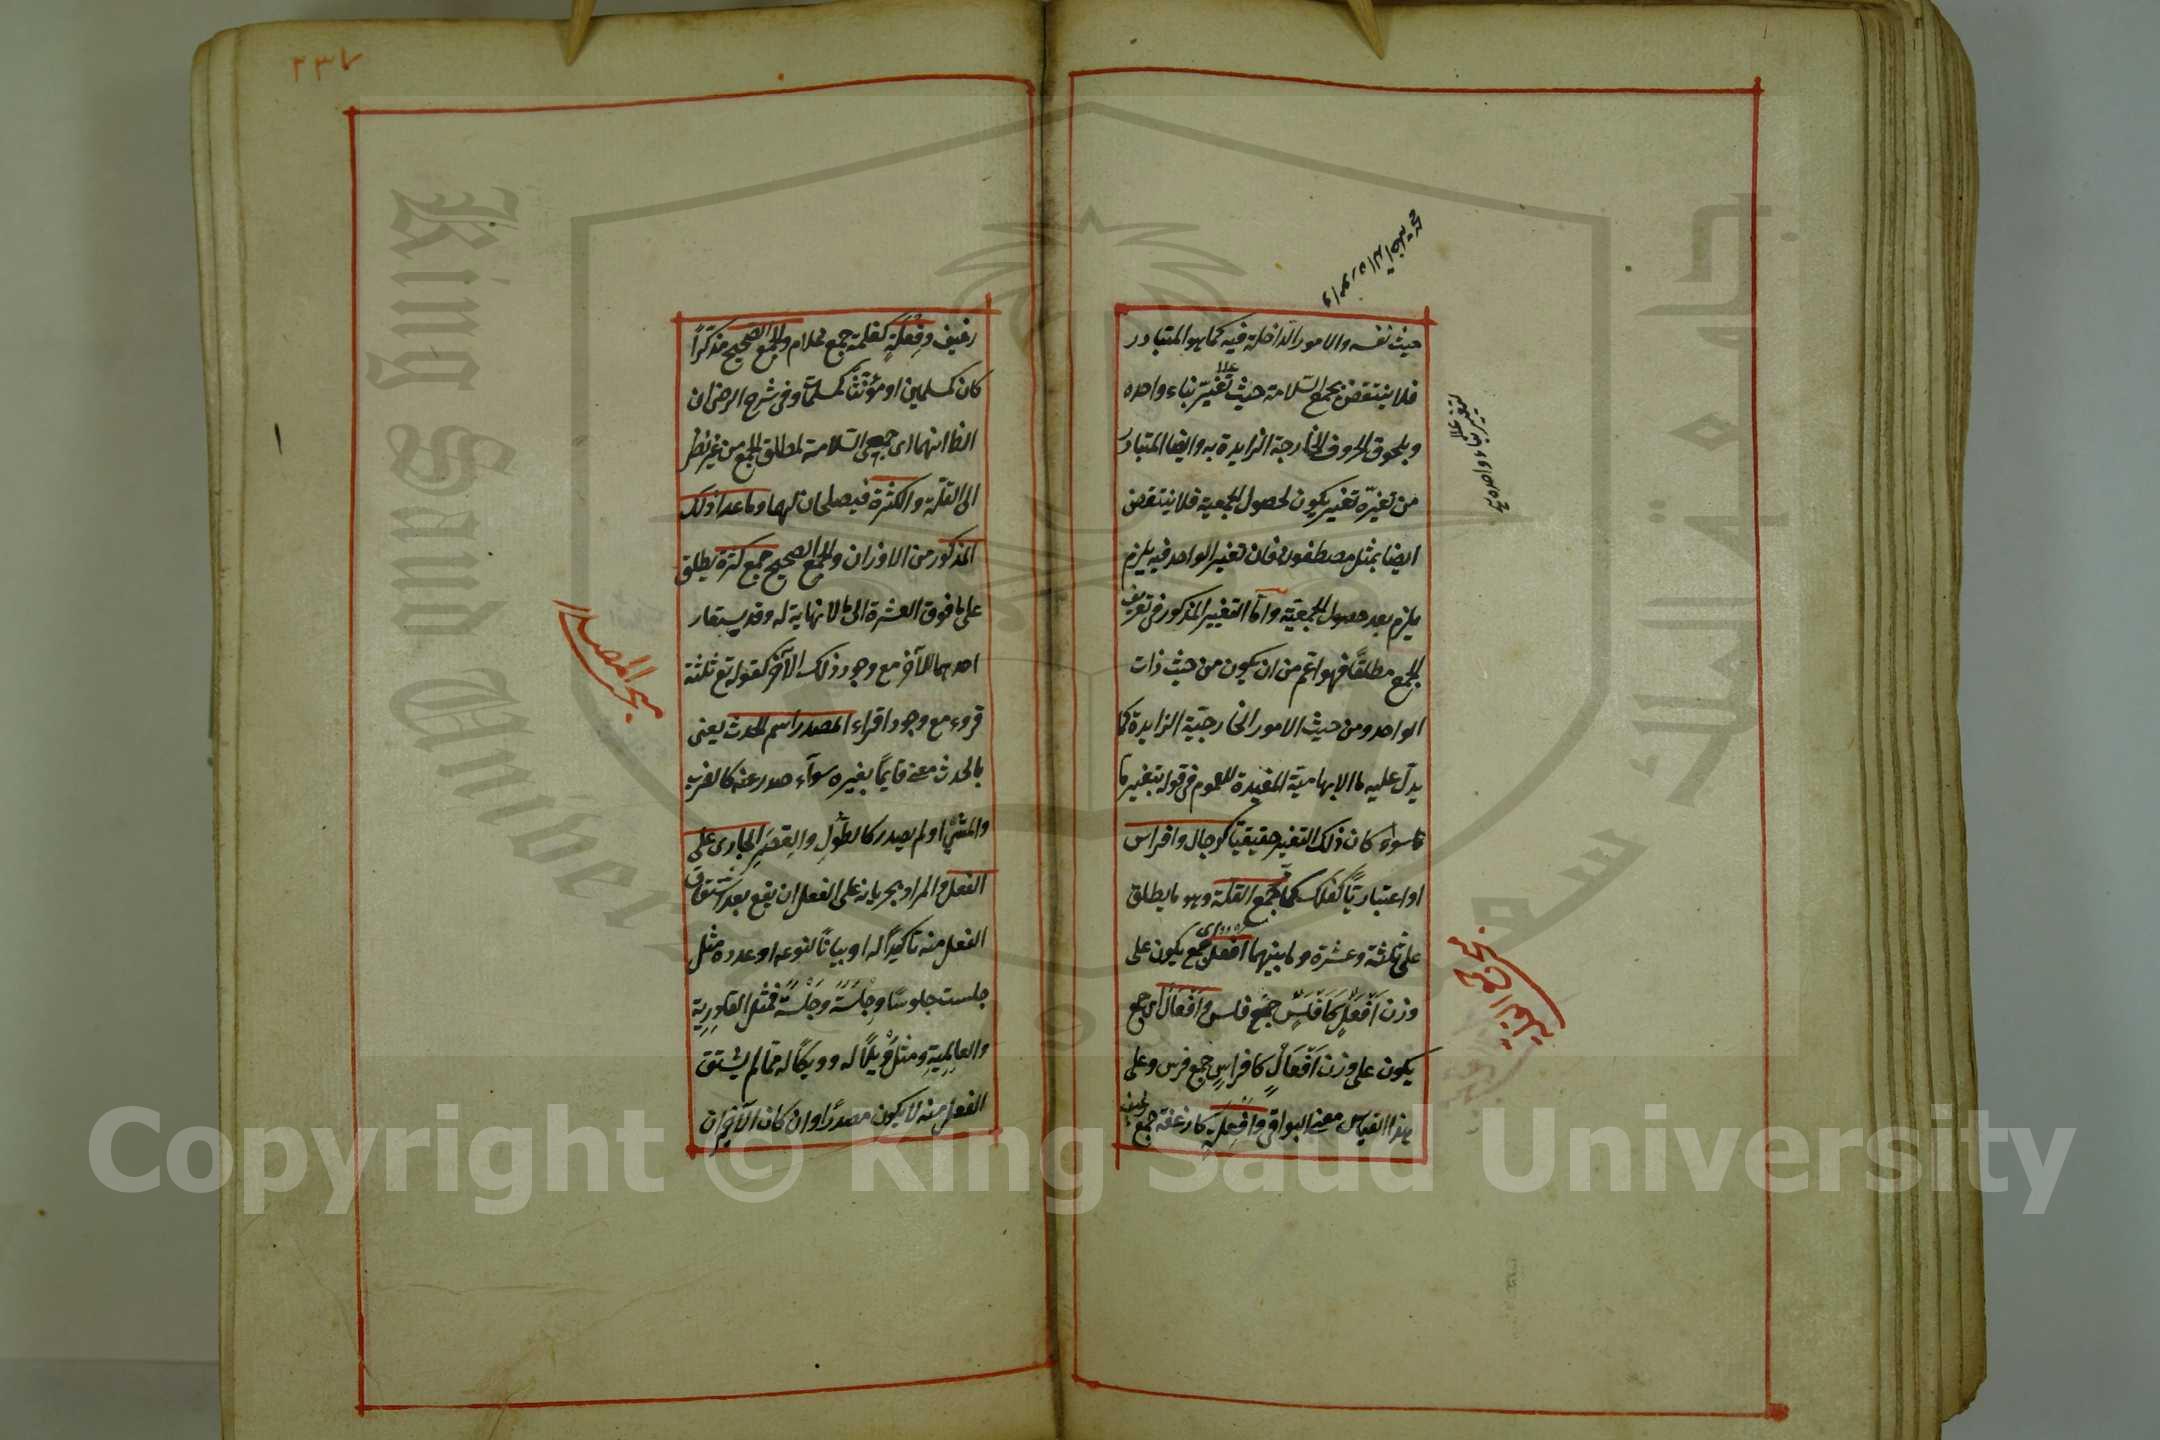 حيث نفسه والامور الداخلة فيه كما هو المتبادر
فلا ينتقض بجمع السلامة حيث تغيّر بناء واحده
وبلحوق الحروف الخارجة الزايدة به وايضا المتبادر
من تغيّره تغيير يكون لحصول الجمعية فلا ينتقض
ايضا بمثل مصطفون فان تغيير الواحد فيه يلزم
يلزم بعد حصول الجمعيّة وامّا التغيير المذكور في تعريف
الجمع مطلقًا فهو اعم من ان يكون من حيث ذات
الواحد ومن حيث الامور الخارجيّة الزايدة كما
يدلّ عليه ما الابهاميّة المفيدة للعموم في قوله بتغيير ما
سواء كان ذلك التغير حقيقيّا كرجال وافراس
او اعتباريّا كفلك كما جمع القلة وهو ما يطلق
على ثلثة وعشرة وما بينهما افعل جمع يكون على
وزن اَفْعَلٍ كَافْلَسٍ جمع فلس واَفْعَال اى جمع
يكون على وزن اَفْعَالٍ كافراسٍ جمع فرس وعلى
هذا القياس معنى البواقى وافْعِلَةٍ كارغفة جمع
رغيف وفِعْلَةٍ كغلمة جمع غلام والجمع الصحيح مذكّرًا
كان كمسلمين او مؤنّثًا كمسلمات وفى شرح الرضى ان
الظا انهما اى جمعى السلامة لمطلق الجمع من غير نظر
الى القلّة والكثرة فيصلحان لهما وما عدا ذلك
المذكور من الاوزان والجمع الصحيح جمع كثرة يطلق
على ما فوق العشرة الى ما لا نهاية له وقد يستعار
احدهما للآخر مع وجود ذلك الآخر كقوله تع ثلثة
قروء مع وجود اقراء المصدر اسم الحدث يعنى
بالحدث معنى قايمًا بغيره سوآء صدر عنه كالضرب
والمشى او لم يصدر كالطُولِ والقِصَرِ الجارى على
الفعل والمراد بجريانه على الفعل ان يقع بعد اشتقاق
الفعل منه تأكيدًا له او بيانًا لنوعه او عدده مثل
جلست جلوسًا وجِلْسَةً وجَلْسَةً فمثل القادرية
والعالِميةِ ومثل وَيْلًا له وويحًا له ممّا لم يشتق
الفعل منه لا يكون مصدرًا وان كان الآخيران
بحر المصدر
٢٣٧